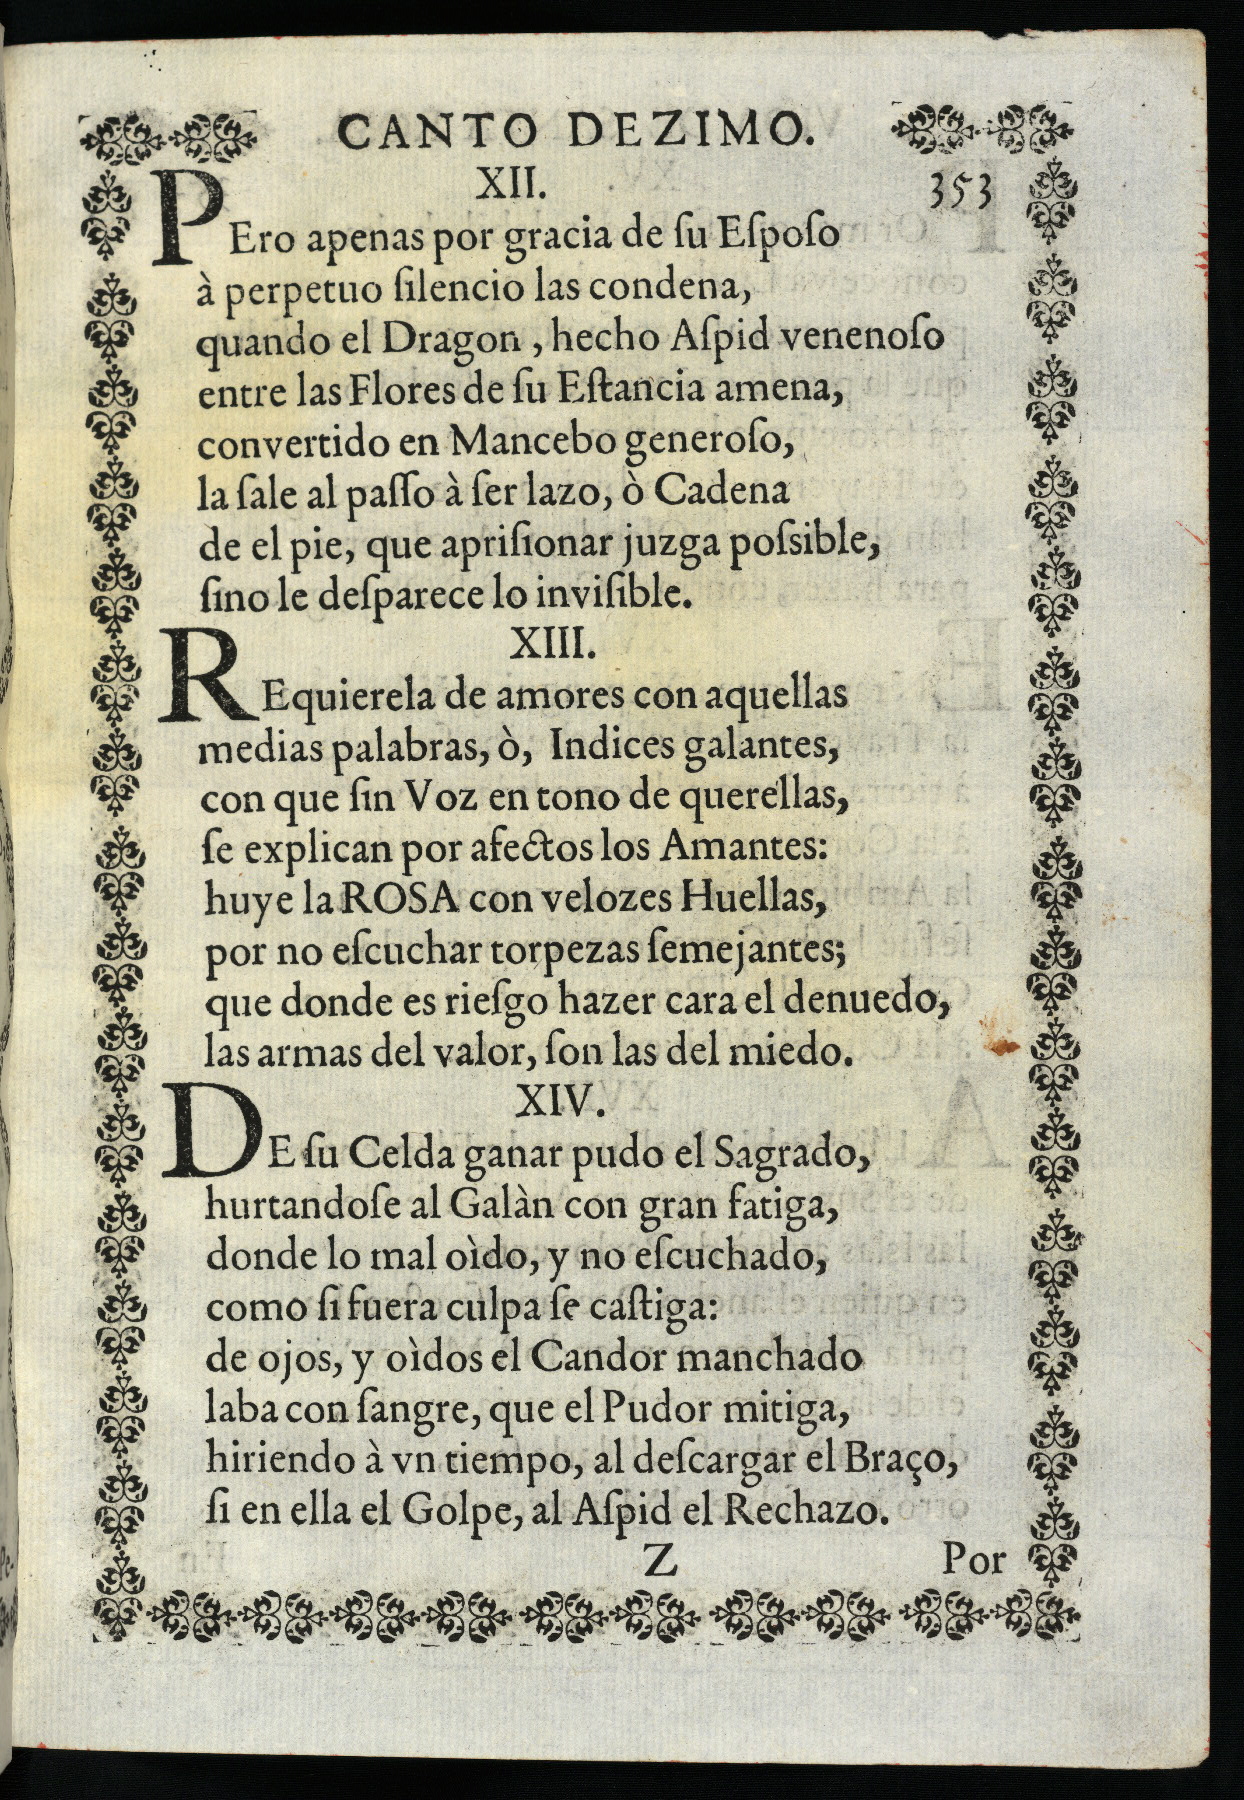 CANTO DEZIMO.
XII.
353
PEro apenas por gracia de ſu Eſpoſo
à perpetuo ſilencio las condena,
quando el Dragon, hecho Aſpid venenoſo
entre las Flores de ſu Eſtancia amena,
convertido en Mancebo generoſo,
la ſale al paſſo à ſer lazo, ò Cadena
de el pie, que apriſionar juzga poſsible,
ſino le deſparece lo inviſible.
XIII.
REquierela de amores con aquellas
medias palabras, ò, Indices galantes,
con que ſin Voz en tono de querellas,
ſe explican por afectos los Amantes:
huye la ROSA con velozes Huellas,
por no eſcuchar torpezas ſemejantes;
que donde es rieſgo hazer cara el denuedo,
las armas del valor, ſon las del miedo.
XIV.
DE ſu Celda ganar pudo el Sagrado,
hurtandoſe al Galàn con gran fatiga,
donde lo mal oìdo, y no eſcuchado,
como ſi fuera culpa ſe caſtiga:
de ojos, y oìdos el Candor manchado
laba con ſangre, que el Pudor mitiga,
hiriendo à vn tiempo, al deſcargar el Braço,
ſi en ella el Golpe, al Aſpid el Rechazo.
Z
Por